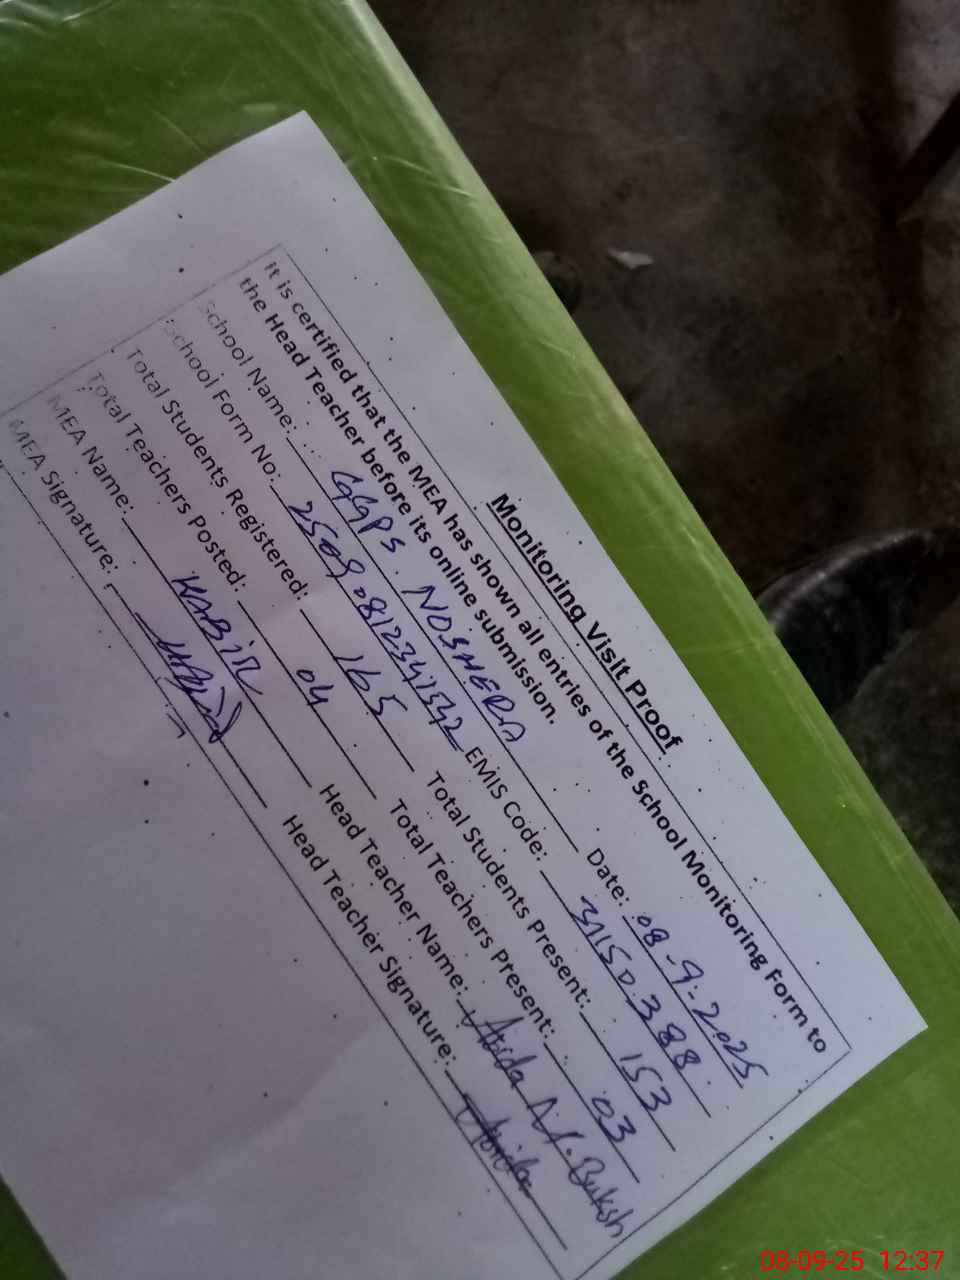 Monitoring Visit Proof
It is certified that the MEA has shown all entries of the School Monitoring Form to
the Head Teacher before its online submission.
School Name: GGPS. NOSHERA Date: 08-9-2025
School Form No: 25090812341542 EMIS Code: 31150388
Total Students Registered: 165 Total Students Present: 153
Total Teachers Posted: 04 Total Teachers Present: 03
MEA Name: KABIR Head Teacher Name: Abida N. Buksh
MEA Signature: Head Teacher Signature: Abida
08-09-25 12:37